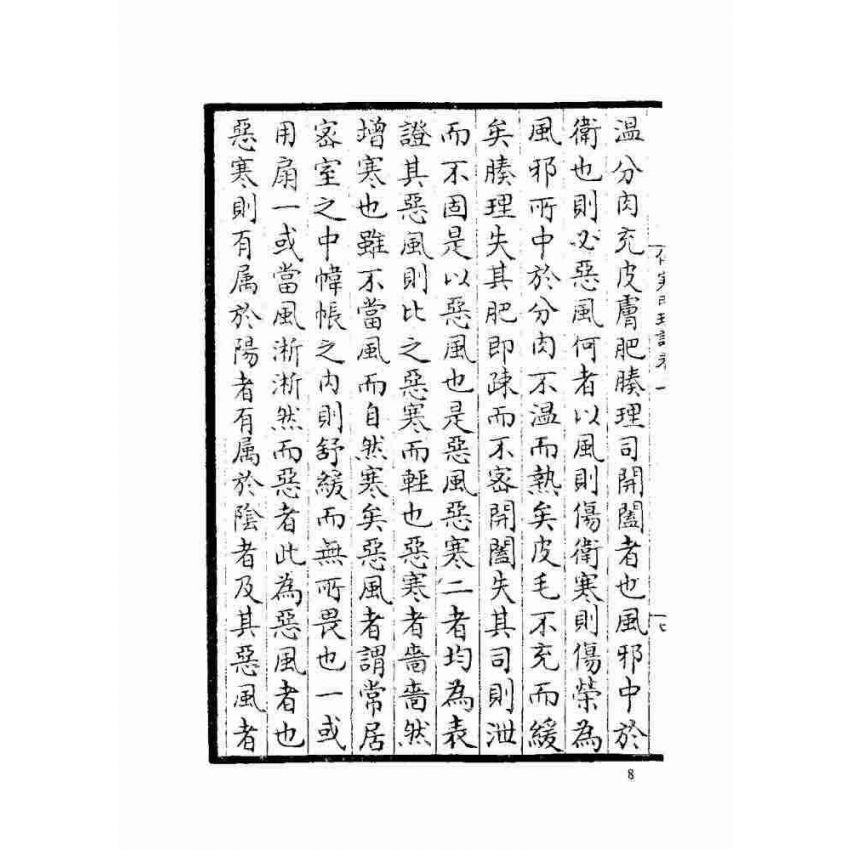 温分肉充皮膚肥腠理司開闔者也風邪中於
衛也則必惡風何者以風則傷衛寒則傷榮為
風邪所中於分肉不温而熱矣皮毛不充而緩
矣腠理失其肥即疎而不密開闔失其司則泄
而不固是以惡風也是惡風惡寒二者均為表
證其惡風則比之惡寒而輕也惡寒者嗇嗇然
增寒也雖不當風而自然寒矣惡風者謂常居
密室之中幃帳之内則舒緩而無所畏也一或
用扇一或當風淅淅然而惡者此為惡風者也
惡寒則有属於陽者有属於陰者及其惡風者
8